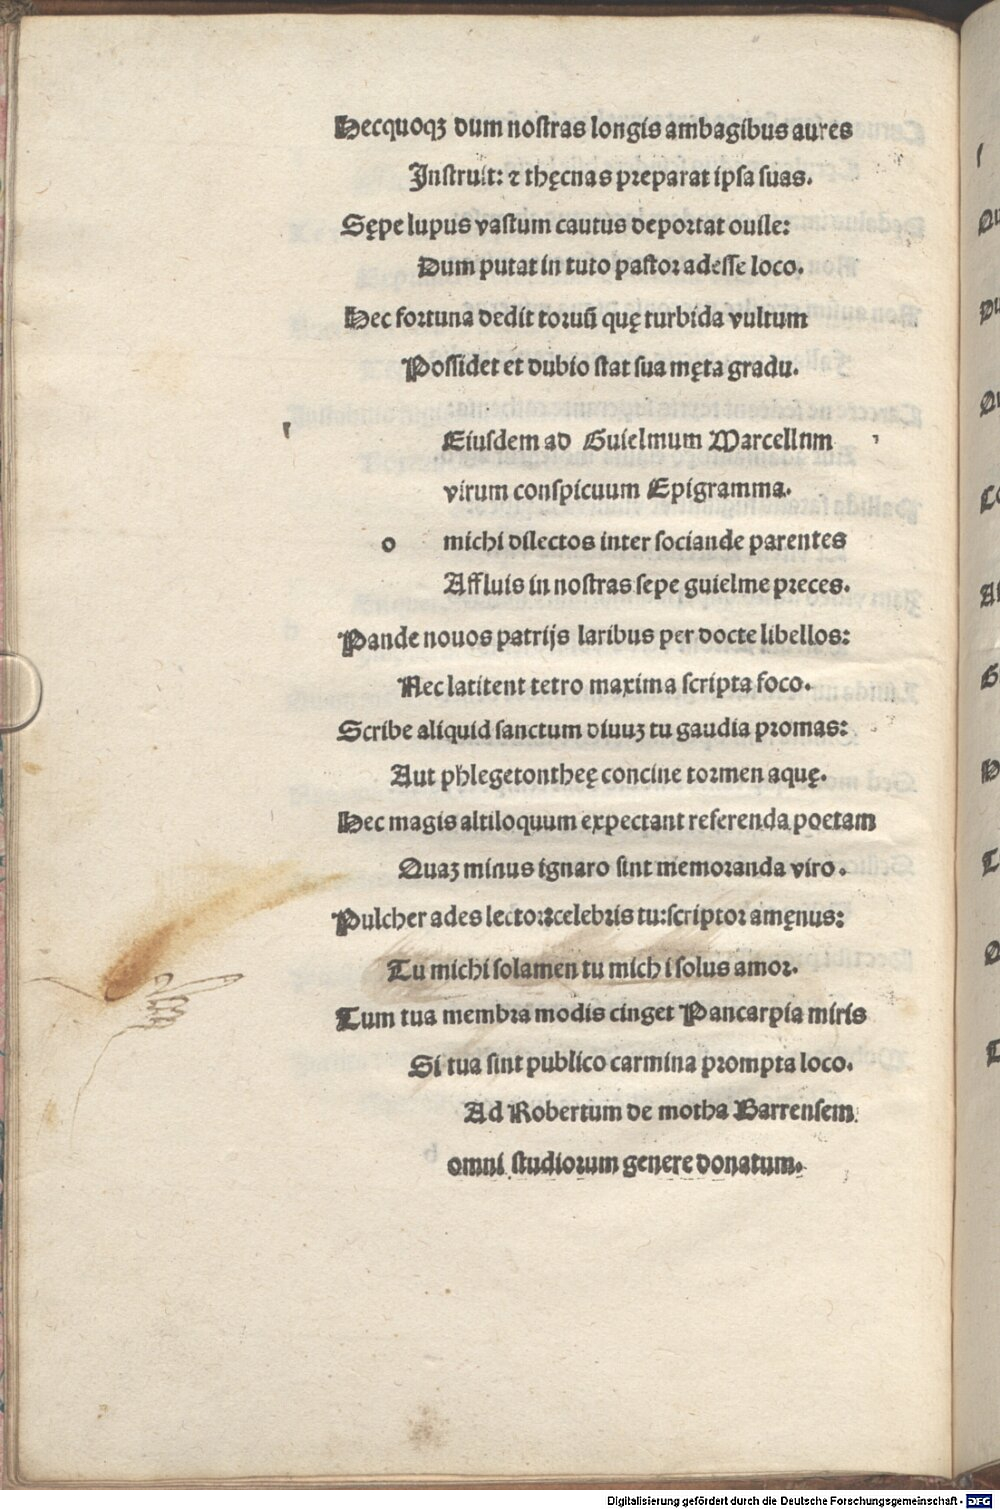 Hecquoqꝫ dum nostras longis ambagibus aures
Instruit: ⁊ thęcnas preparat ipsa suas.
Sępe lupus vastum cautus deportat ouile:
Dum putat in tuto pastor adesse loco.
Hec fortuna dedit toruū quę turbida vultum
Possidet et dubio stat sua męta gradu.
Eiusdem ad Guielmum Marcellnm
virum conspicuum Epigramma.
o michi dilectos inter sociande parentes
Affluis in nostras sepe guielme preces.
Pande nouos patrijs laribus per docte libellos:
Nec latitent tetro maxima scripta foco.
Scribe aliquid sanctum diuuꝫ tu gaudia promas:
Aut phlegetontheę concine tormen aquę.
Hec magis altiloquum expectant referenda poetam
Quaꝫ minus ignaro sint memoranda viro.
Pulcher ades lector:celebris tu:scriptor amęnus:
Tu michi solamen tu michi solus amor.
Tum tua membra modis cinget Pancarpia miris
Si tua sint publico carmina prompta loco.
Ad Robertum de motha Barrensem
omni studiorum genere donatum.
Digitalisierung gefördert durch die Deutsche Forschungsgemeinschaft - DFG